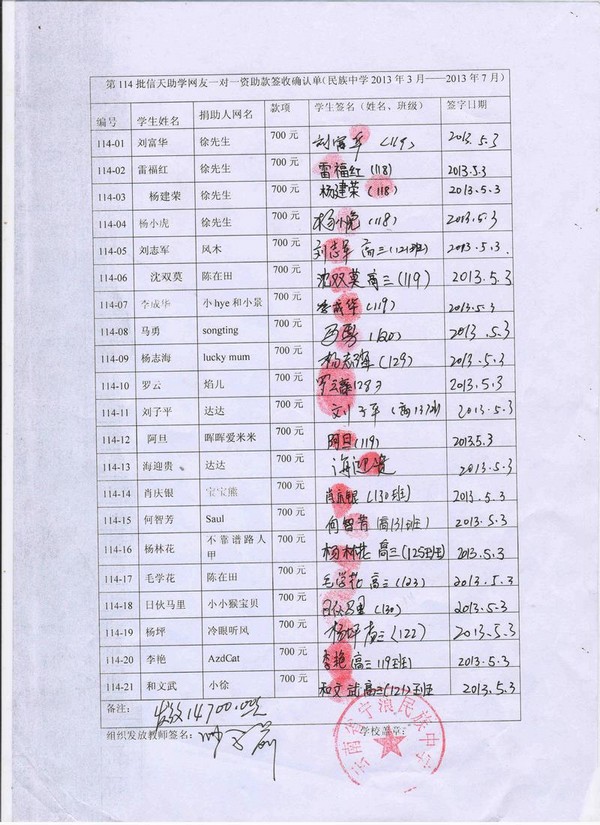 第114批信天助学网友一对一资助款签收确认单(民族中学2013年3月——2013年7月)
编号 学生姓名 捐助人网名 款项 学生签名（姓名、班级） 签字日期
114-01 刘富华 徐先生 700元 刘富华 (119) 2013.5.3
114-02 雷福红 徐先生 700元 雷福红 (118) 2013.5.3
114-03 杨建荣 徐先生 700元 杨建荣 (118) 2013.5.3
114-04 杨小虎 徐先生 700元 杨小虎 (118) 2013.5.3
114-05 刘志军 风木 700元 刘志军 高三(121班) 2013.5.3.
114-06 沈双莫 陈在田 700元 沈双莫 高三(119) 2013.5.3
114-07 李成华 小hye和小景 700元 李成华 (119) 2013.5.3
114-08 马勇 songting 700元 马勇 (120) 2013.5.3
114-09 杨志海 lucky mum 700元 杨志海 (129) 2013.5.3
114-10 罗云 焰儿 700元 罗云 128 2013.5.3
114-11 刘子平 达达 700元 刘子平 2013.5.3
114-12 阿旦 晖晖爱米米 700元 阿旦 (119) 2013.5.3
114-13 海迎贵 达达 700元 海迎贵 2013.5.3
114-14 肖庆银 宝宝熊 700元 肖庆银 (130班) 2013.5.3
114-15 何智芳 Saul 700元 何智芳 (高131班) 2013.5.3
114-16 杨林花 不靠谱路人甲 700元 杨林花 高三(125班) 2013.5.3
114-17 毛学花 陈在田 700元 毛学花 高三(123) 2013.5.3
114-18 日伙马里 小小猴宝贝 700元 日伙马里 (130) 2013.5.3
114-19 杨坪 冷眼听风 700元 杨坪 高三(122) 2013.5.3
114-20 李艳 AzdCat 700元 李艳 (高三119班) 2013.5.3
114-21 和文武 小徐 700元 和文武 高三(121)班 2013.5.3
备注： 14700.00元
组织发放教师签名： 学校盖章：
云南省宁蒗民族中学